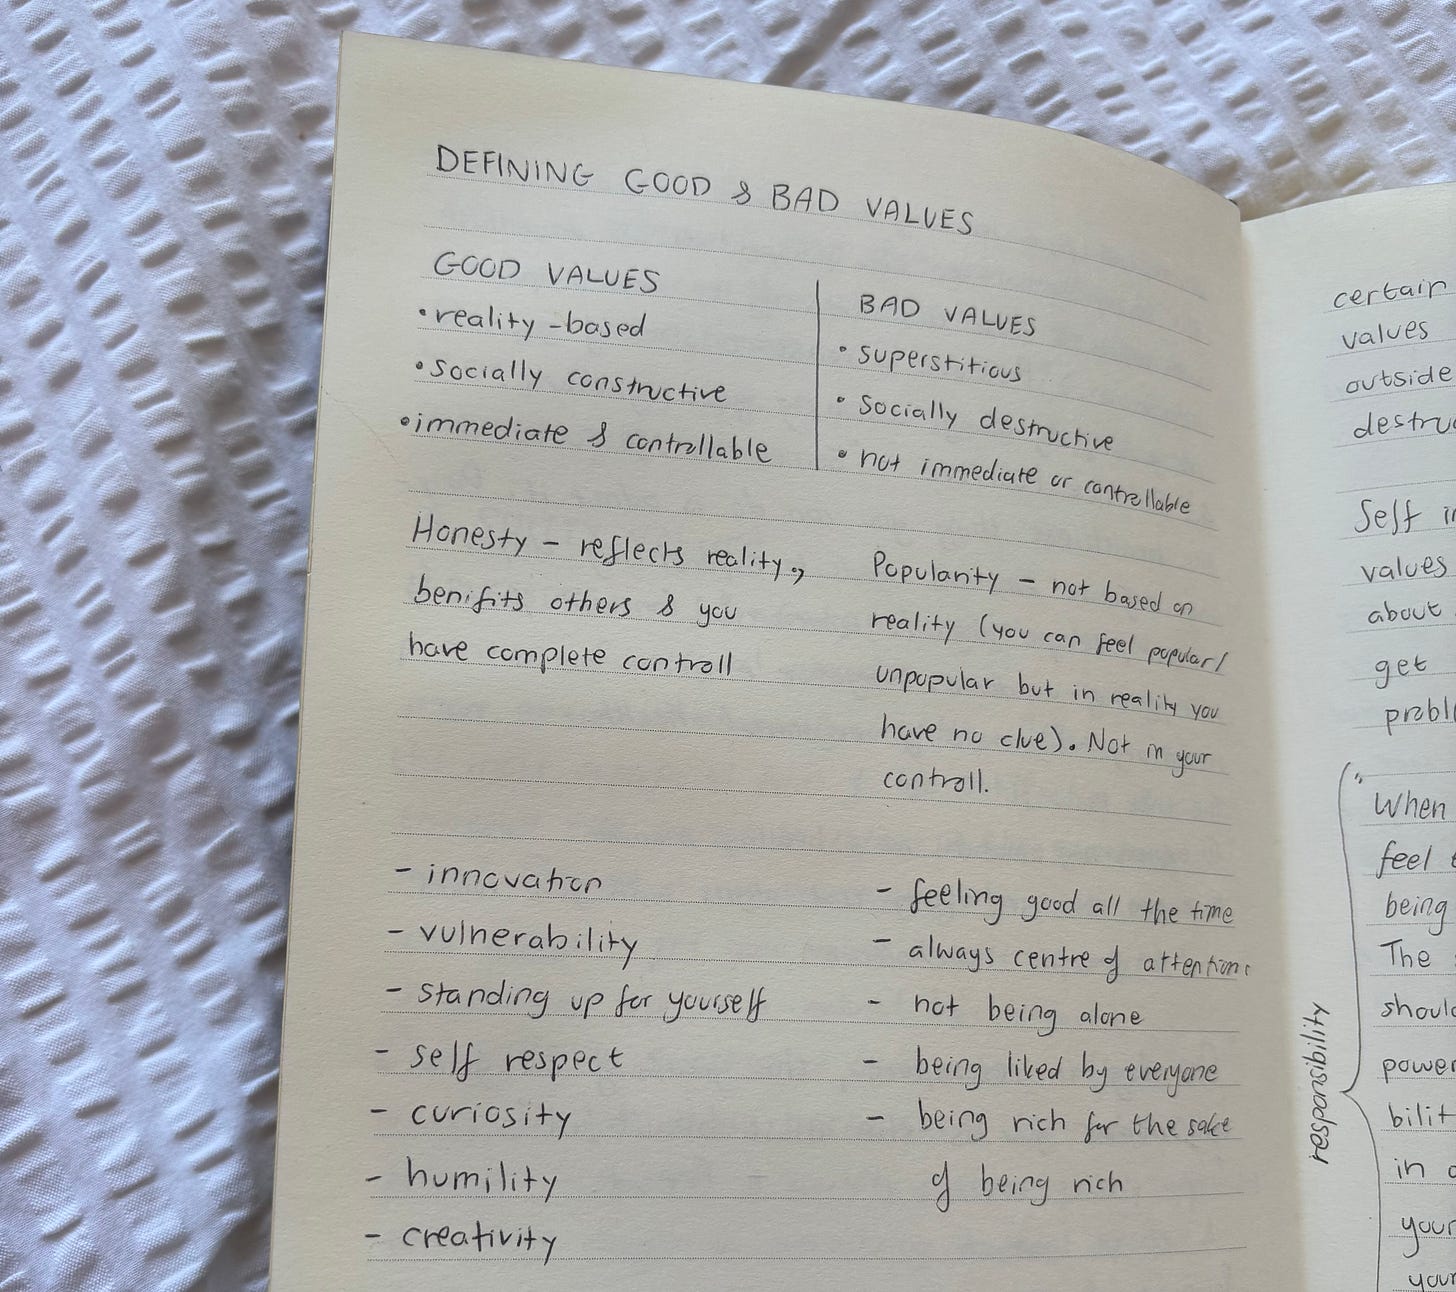 DEFINING GOOD & BAD VALUES
GOOD VALUES
• reality-based
• socially constructive
• immediate & controllable
BAD VALUES
• superstitious
• socially destructive
• not immediate or controllable
Honesty – reflects reality,
benifits others & you
have complete controll
Popularity – not based on
reality (you can feel popular/
unpopular but in reality you
have no clue). Not in your
controll.
- innovation
- vulnerability
- standing up for yourself
- self respect
- curiosity
- humility
- creativity
- feeling good all the time
- always centre of attention
- not being alone
- being liked by everyone
- being rich for the sake
of being rich
certain
values
outside
Self
values
about
get
responsibility
"
When
feel
being
The
in